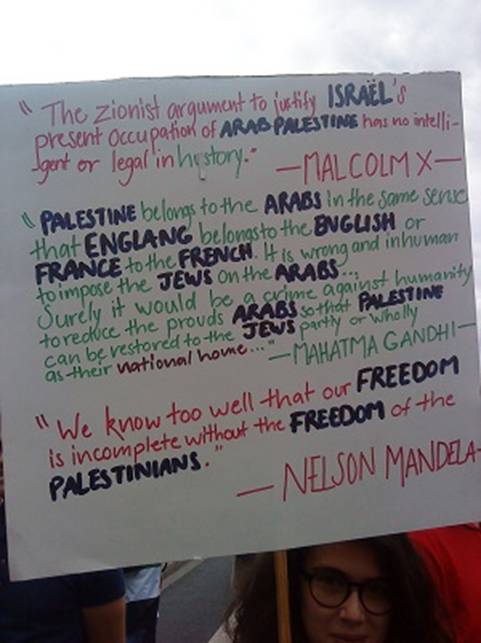 " The zionist argument to justify ISRAËL's
present occupation of ARAB PALESTINE has no intelli-
-gent or legal in history."
—MALCOLM X—
" PALESTINE belongs to the ARABS in the same sense
that ENGLANG belongs to the ENGLISH or
FRANCE to the FRENCH. It is wrong and inhuman
to impose the JEWS on the ARABS...
Surely it would be a crime against humanity
to reduce the prouds ARABS so that PALESTINE
can be restored to the JEWS partly or wholly
as their national home..." —MAHATMA GANDHI—
" We know too well that our FREEDOM
is incomplete without the FREEDOM of the
PALESTINIANS."
— NELSON MANDELA-